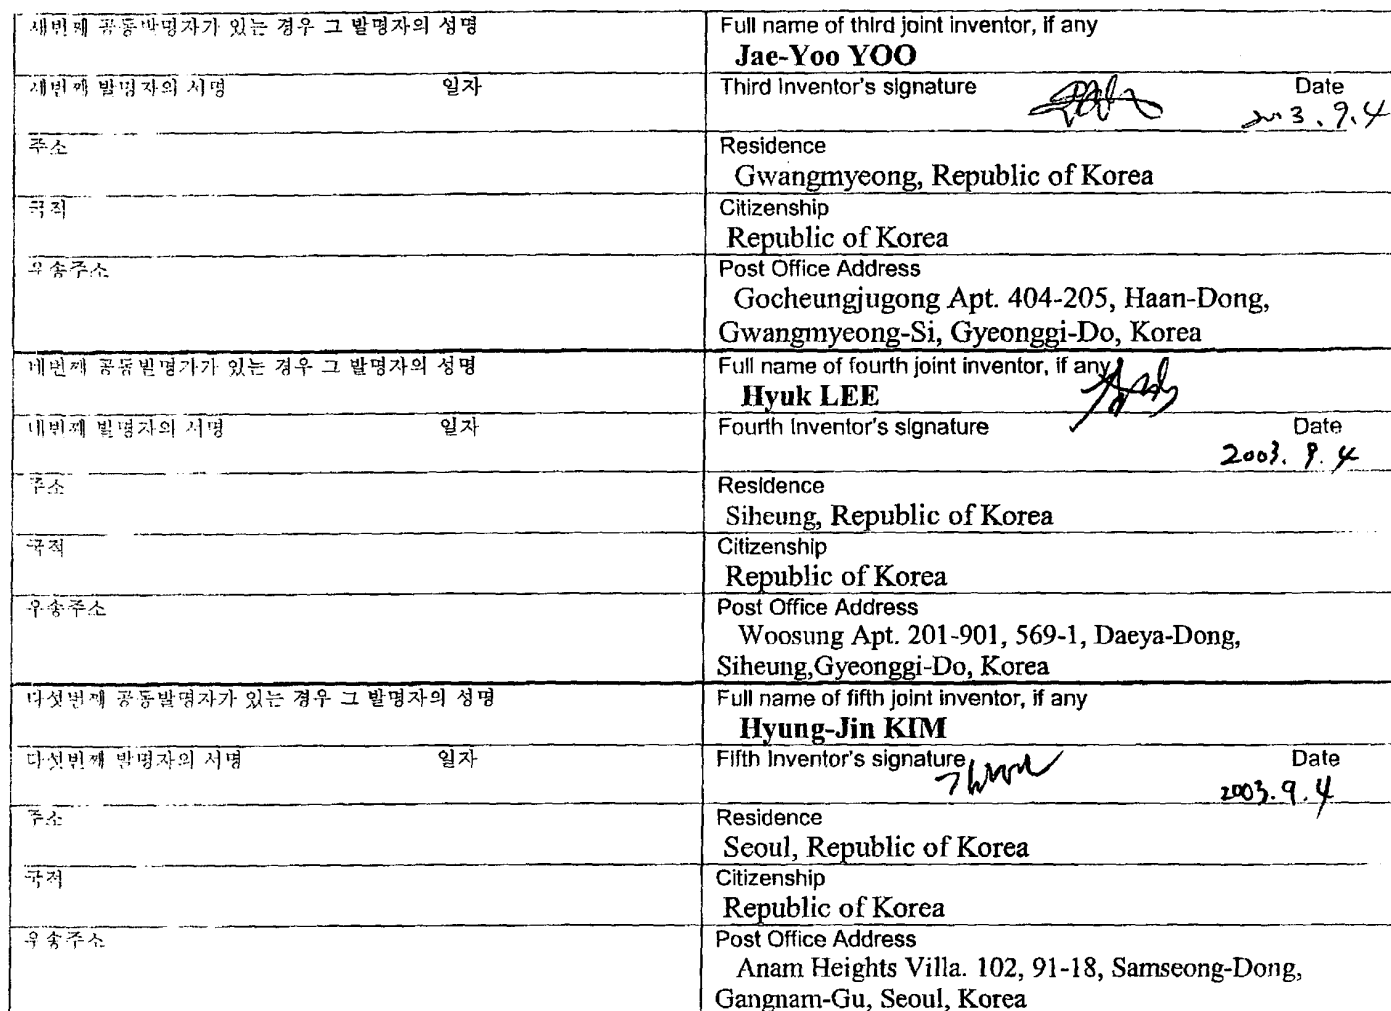 세번째 공동발명자가 있는 경우 그 발명자의 성명
Full name of third joint inventor, if any
Jae-Yoo YOO
세번째 발명자의 서명 일자
Third Inventor's signature Date
2003. 9. 4
주소
Residence
Gwangmyeong, Republic of Korea
국적
Citizenship
Republic of Korea
우송주소
Post Office Address
Gocheungjugong Apt. 404-205, Haan-Dong,
Gwangmyeong-Si, Gyeonggi-Do, Korea
네번째 공동발명가가 있는 경우 그 발명자의 성명
Full name of fourth joint inventor, if any
Hyuk LEE
네번째 발명자의 서명 일자
Fourth Inventor's signature Date
2003. 9. 4
주소
Residence
Siheung, Republic of Korea
국적
Citizenship
Republic of Korea
우송주소
Post Office Address
Woosung Apt. 201-901, 569-1, Daeya-Dong,
Siheung,Gyeonggi-Do, Korea
다섯번째 공동발명자가 있는 경우 그 발명자의 성명
Full name of fifth joint inventor, if any
Hyung-Jin KIM
다섯번째 발명자의 서명 일자
Fifth Inventor's signature Date
2003. 9. 4
주소
Residence
Seoul, Republic of Korea
국적
Citizenship
Republic of Korea
우송주소
Post Office Address
Anam Heights Villa. 102, 91-18, Samseong-Dong,
Gangnam-Gu, Seoul, Korea